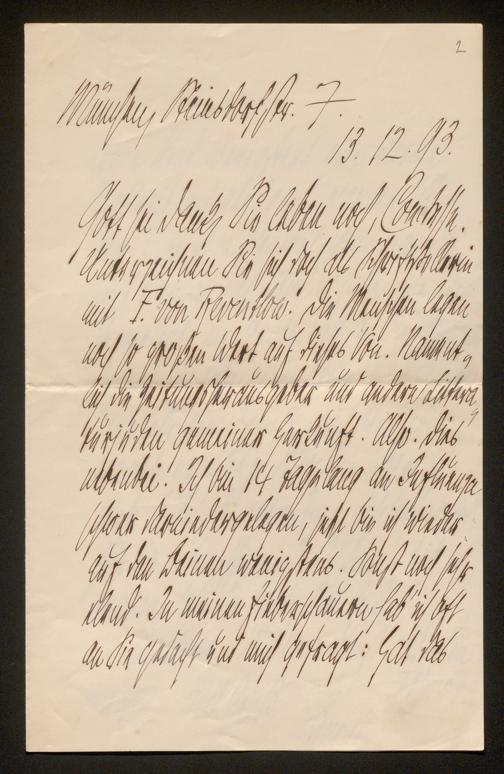 2
München, Steinsdorfstr. 7.
13. 12. 93.
Gott sei Dank, Sie leben noch, Comtesse.
Unterzeichnen Sie sich doch als Schriftstellerin
mit F. von Reventlow. Die Menschen legen
noch so großen Wert auf dieses von. Nament-
lich die Zeitungsherausgeber und andere Littera-
turjuden gemeiner Herkunft. Also. Dies
nebenbei. Ich bin 14 Tage lang an Influenza
schwer darniedergelegen, jetzt bin ich wieder
auf den Beinen wenigstens. Sonst noch sehr
elend. In meinen Fieberschauern hab' ich oft
an Sie gedacht und mich gefragt: Hat das